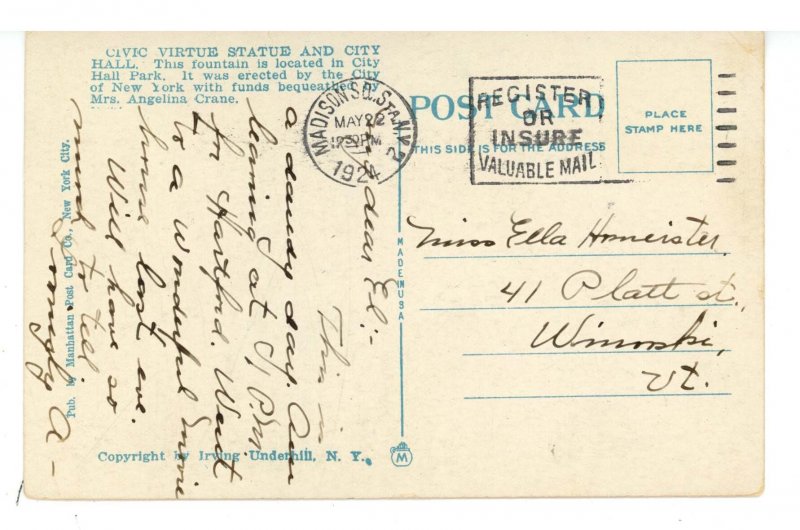 CIVIC VIRTUE STATUE AND CITY
HALL. This fountain is located in City
Hall Park. It was erected by the City
of New York with funds bequeathed by
Mrs. Angelina Crane.
POST CARD
THIS SIDE IS FOR THE ADDRESS
PLACE
STAMP HERE
MADISON SQ. STA. N.Y. 2
MAY 22
12 30 PM
1924
REGISTER
OR
INSURE
VALUABLE MAIL
Miss Ella Homeister,
41 Platt st.,
Winooski,
Vt.
dear El:-
This is
a dandy day. Am
leaving at 5 PM
for Hartford. Went
to a wonderful movie
house last eve.
Will have so
much to tell.
Lovingly A-
MADE IN USA
M
Pub. by Manhattan Post Card Co., New York City.
Copyright by Irving Underhill, N. Y.